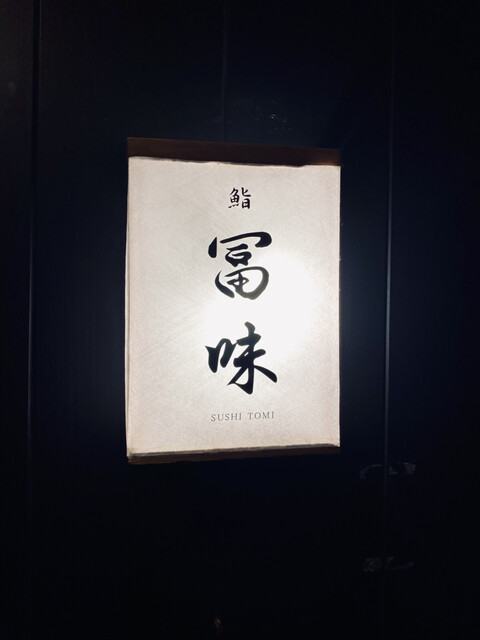 鮨
冨
味
SUSHI TOMI